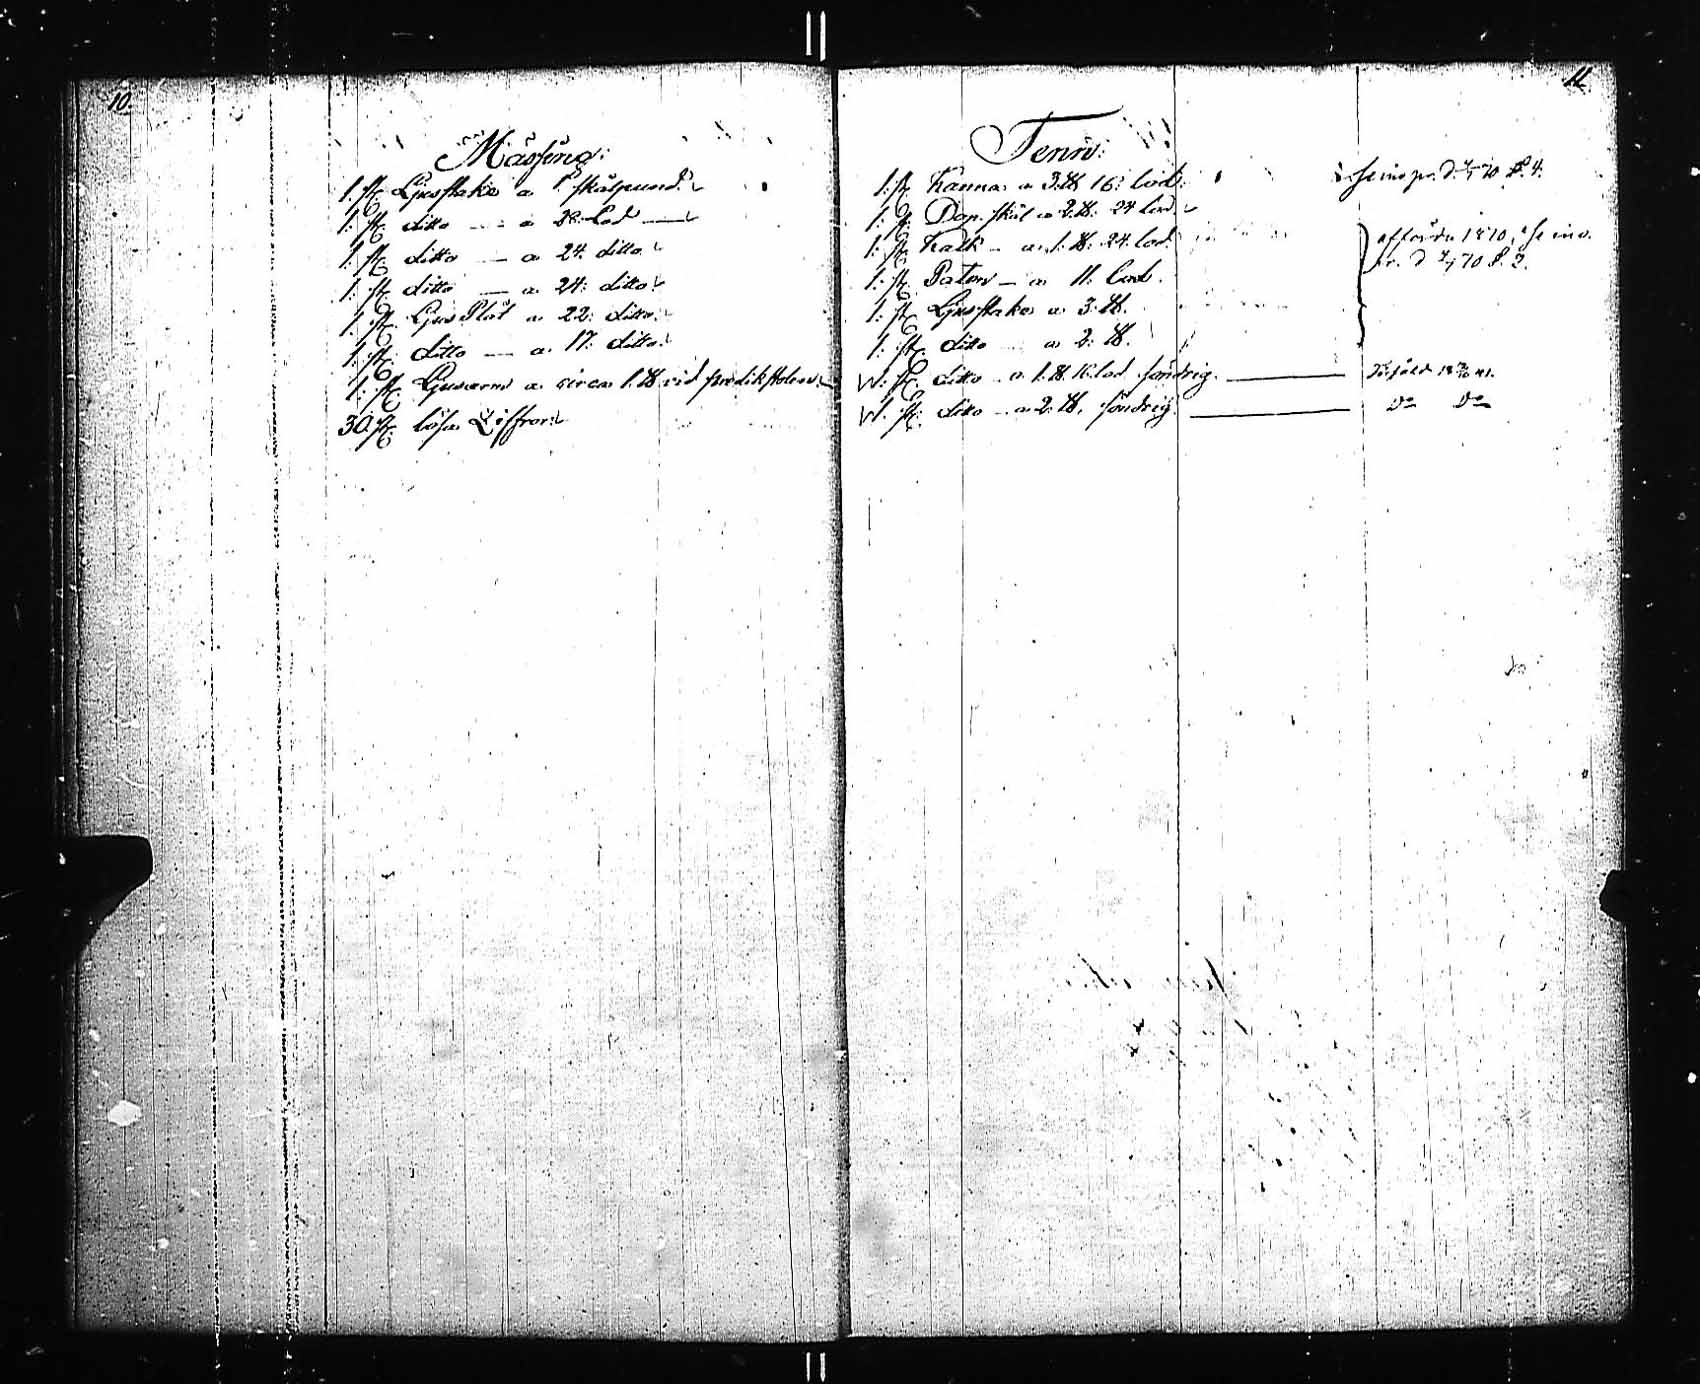 10.
Mässing:
1. st. Ljusstake a 1. skålpund.
1. st. ditto — a 28. Lod —
1. st. ditto — a 24. ditto
1. st. ditto — a 24. ditto
1. st. Ljus Plåt a 22. ditto
1. st. ditto — a 17. ditto
1. st. Ljusarm a circa 1. ℔ vid predikstolen.
30. st. lösa Ziffror.
11.
Tenn:
1. st. Kanna a 3. ℔ 16. lod.
1. st. Dop skål a 2. ℔. 24 lod.
1. st. Kalk — a 1. ℔. 24. lod.
1. st. Paten — a 11. Lod.
1. st. Ljusstake a 3. ℔.
1. st. ditto a 2. ℔.
st. ditto a 1. ℔. 16. lod söndrig.
st. ditto — a 2. ℔. söndrig.
se ins pr. d. 70 P. 4.
afförde 1870, se ins.
pr. d 70 P. 2.
Do Do